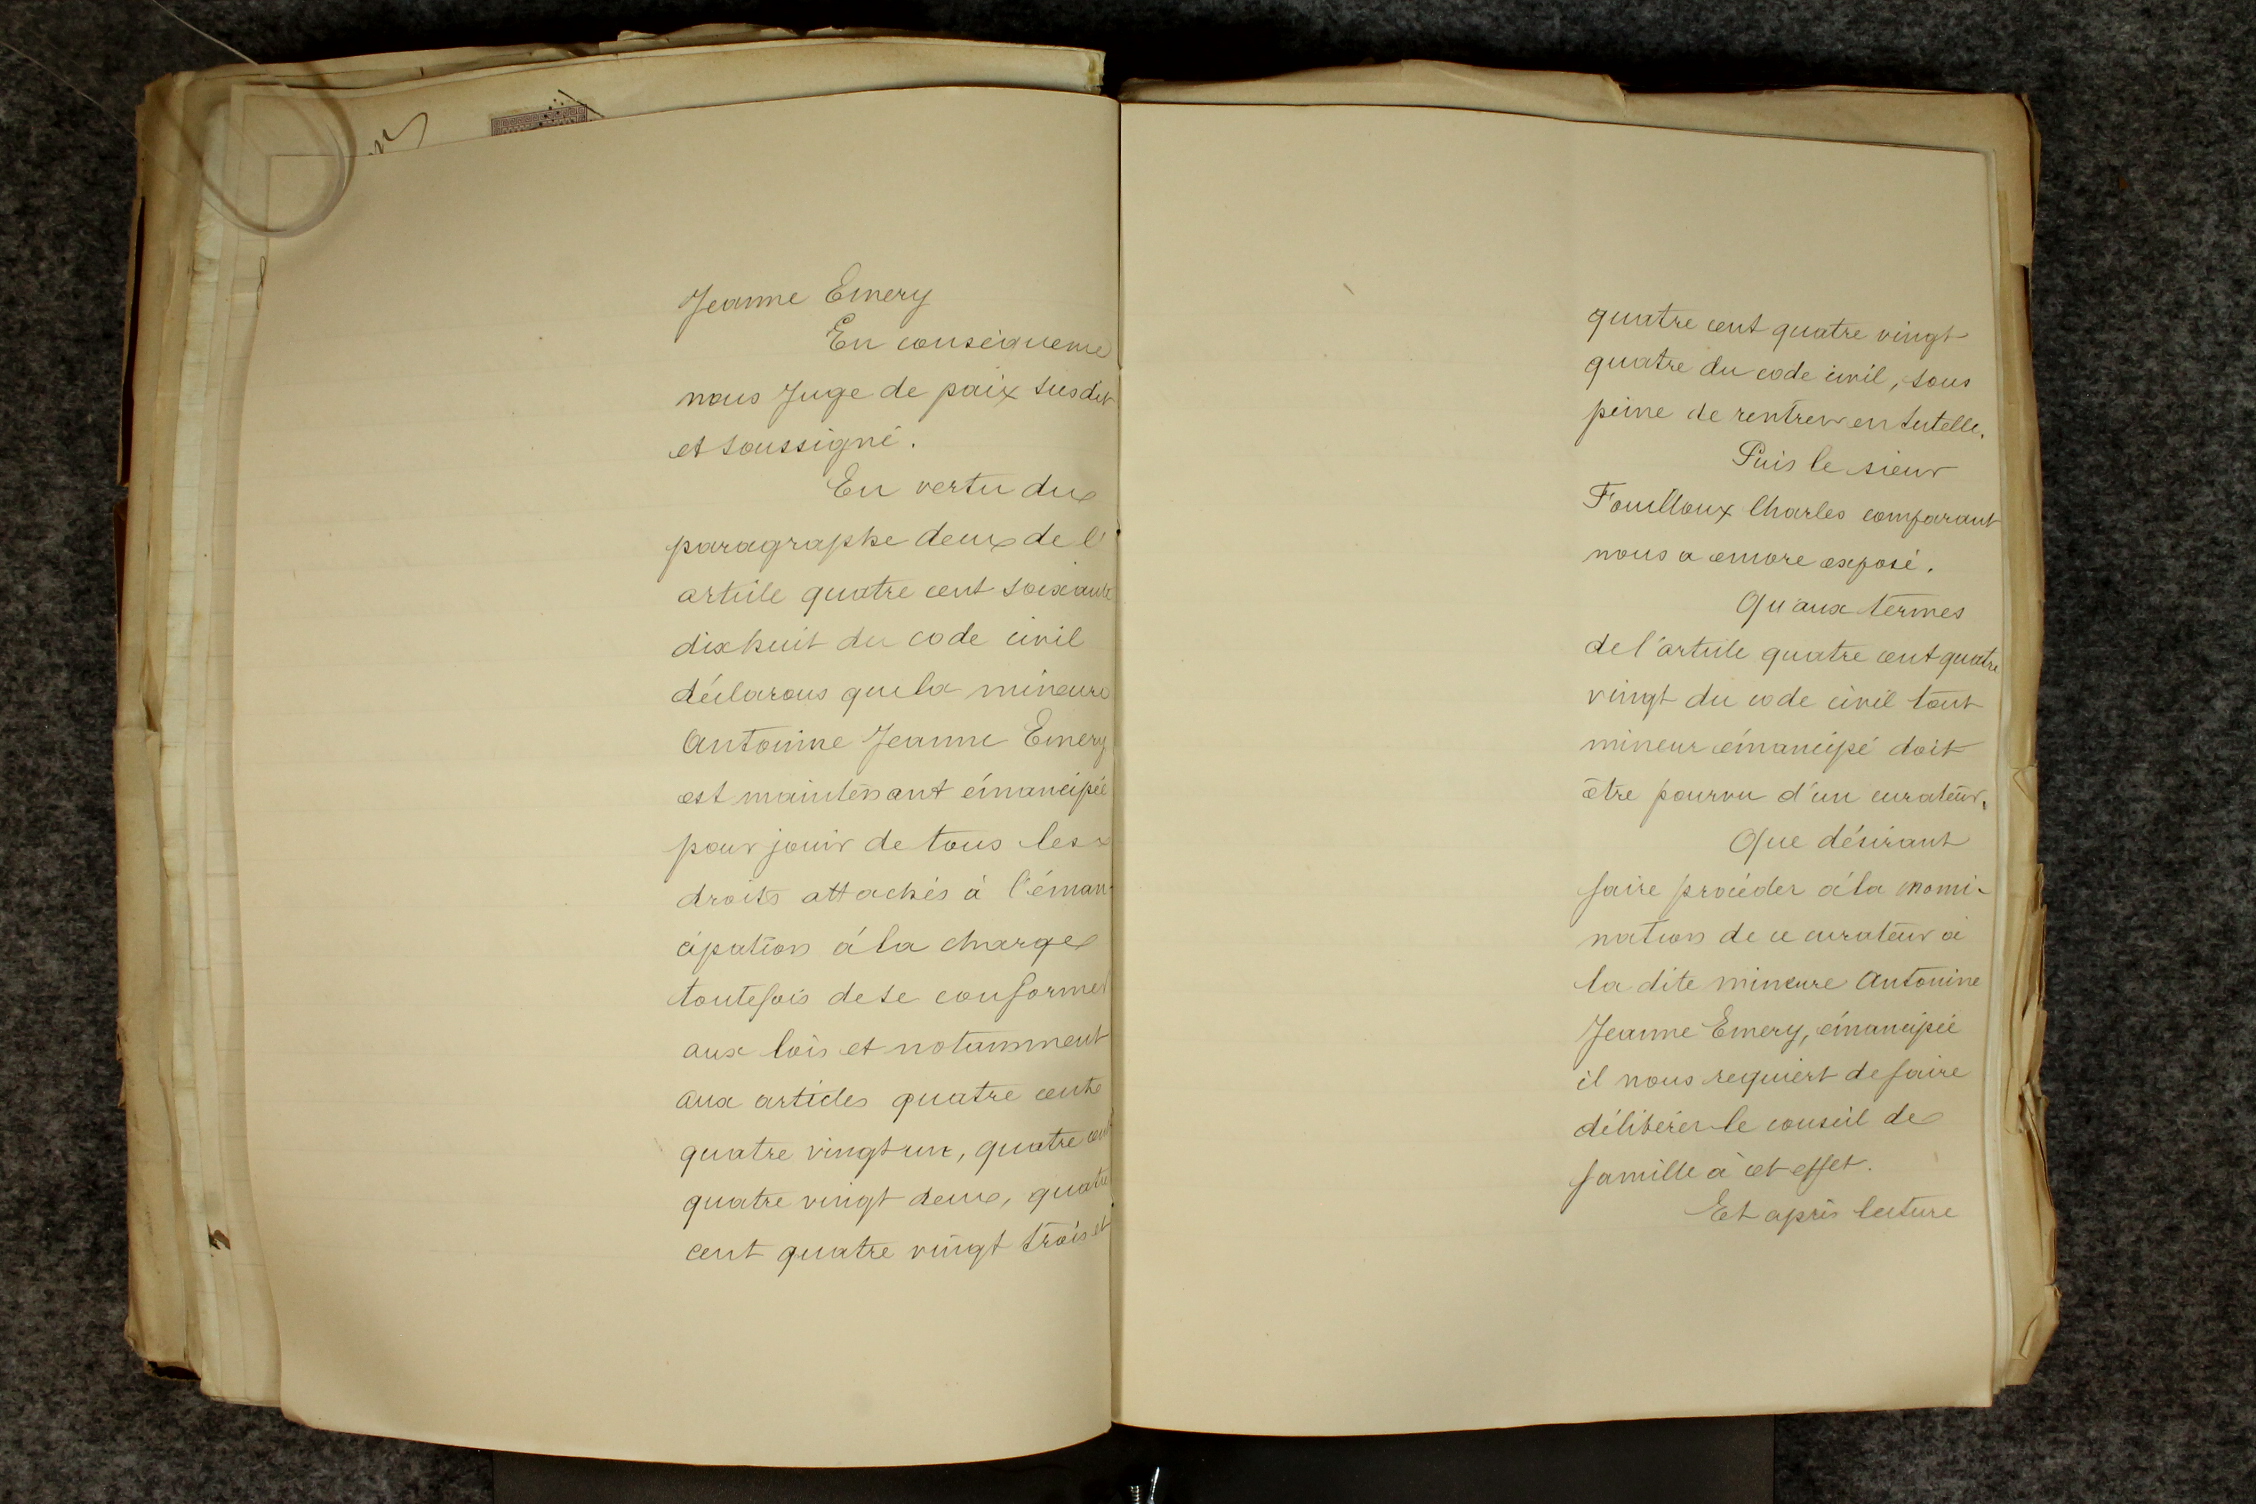 Jeanne Emery
En conséquence
nous Juge de paix susdit
et soussigné.
En vertu du
paragraphe deux de l'
article quatre cent soixante
dixhuit du code civil
déclarons que la mineure
Antonine Jeanne Emery
est maintenant émancipée
pour jouir de tous les
droits attachés à l'éman-
cipation à la charge
toutefois de se conformer
aux lois et notamment
aux articles quatre cent
quatre vingt un, quatre cent
quatre vingt deux, quatre
cent quatre vingt trois et
quatre cent quatre vingt
quatre du code civil, sous
peine de rentrer en tutelle.
Puis le sieur
Fouilloux Charles comparant
nous a encore exposé.
Qu'aux termes
de l'article quatre cent quatre
vingt du code civil tout
mineur émancipé doit
être pourvu d'un curateur.
Que désirant
faire procéder à la nomi-
nation de ce curateur à
la dite mineure Antonine
Jeanne Emery, émancipée
il nous requiert de faire
délibérer le conseil de
famille à cet effet.
Et après lecture